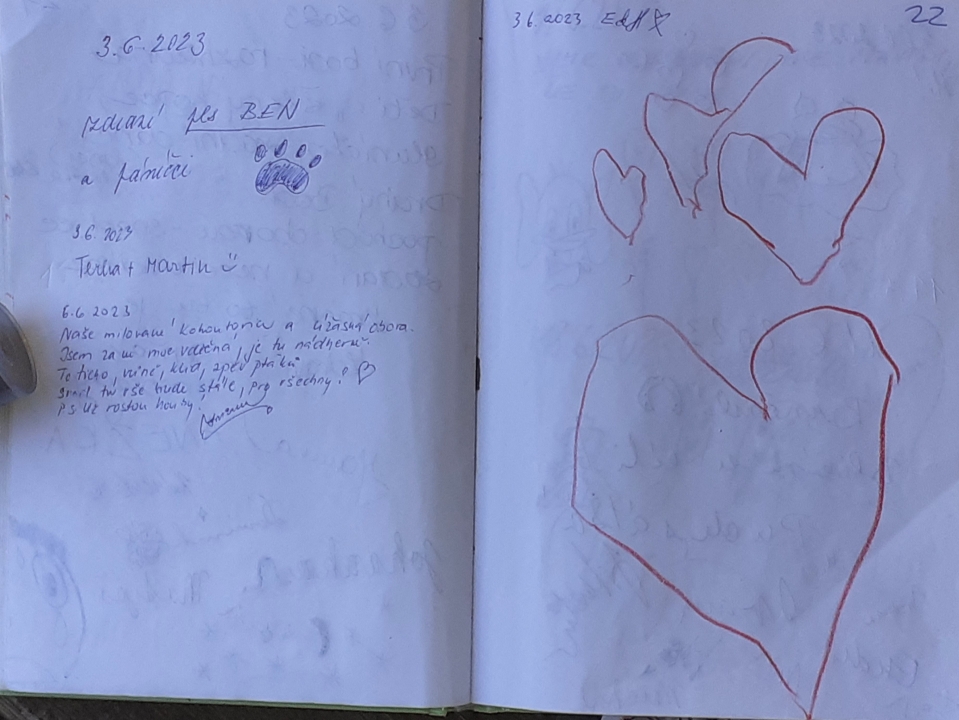 3.6.2023
zdraví pes BEN
a páníčci
3.6.2023
Terka + Martin
6.6 2023
Naše milovaná Kohoutovice a úžasná obora.
Jsem za ní moc vděčná, je tu nádherně.
To ticho, vůně, klid, zpěv ptáků
tu vše bude stále, pro všechny!
P.S Už rostou houby!
3.6.2023
22